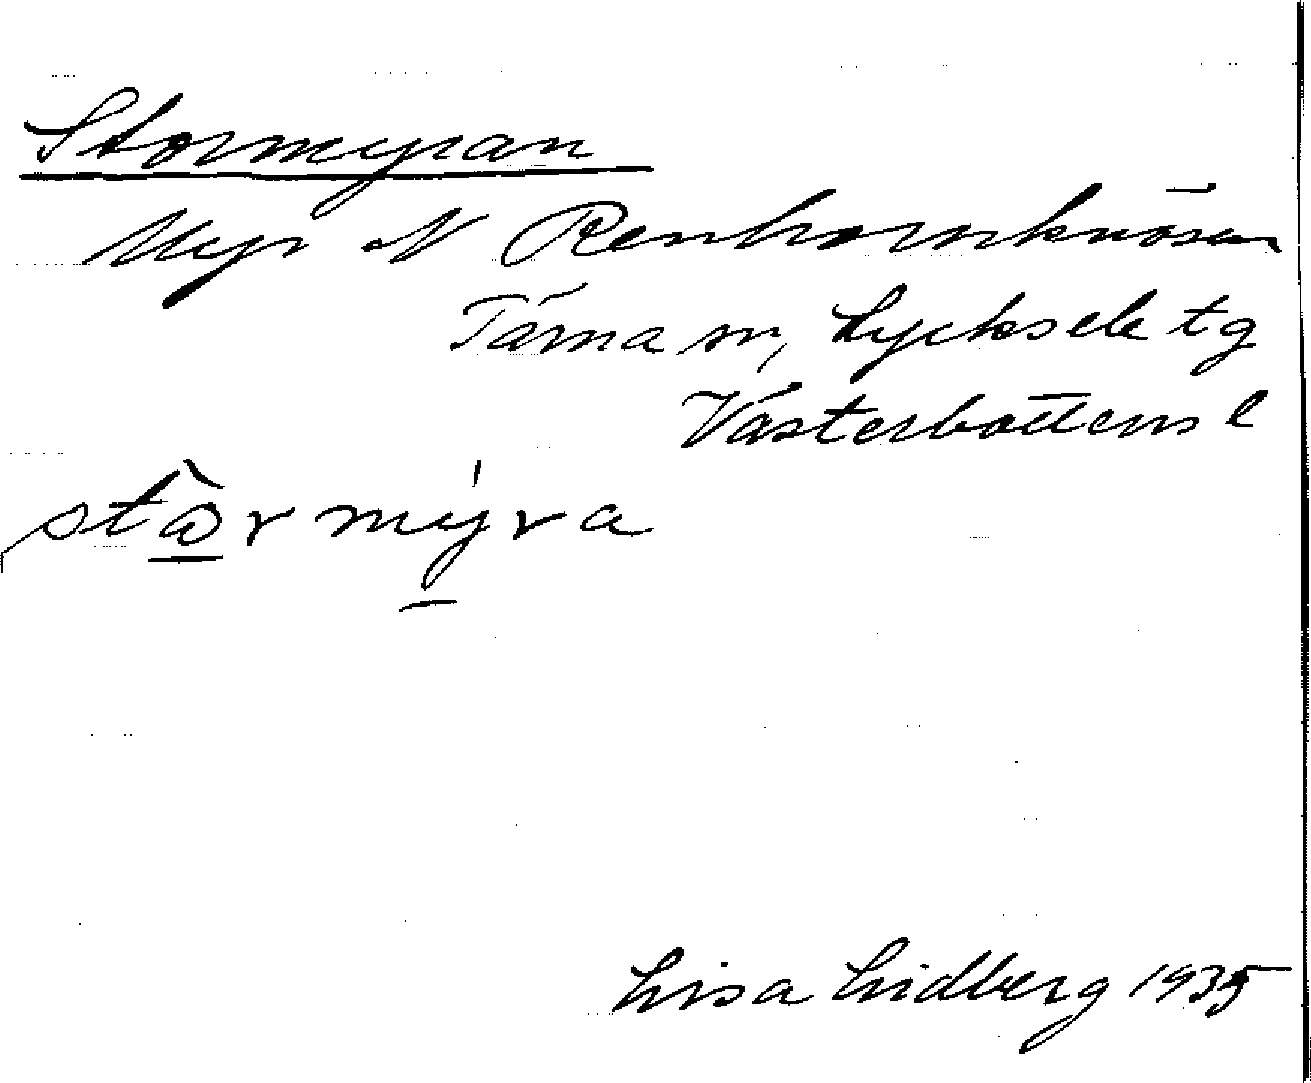 Stormyran
Myr N Renhornknösen
Tärna sn, Lycksele tg
Västerbottens l
stòrmýra
Lisa Lidberg 1935